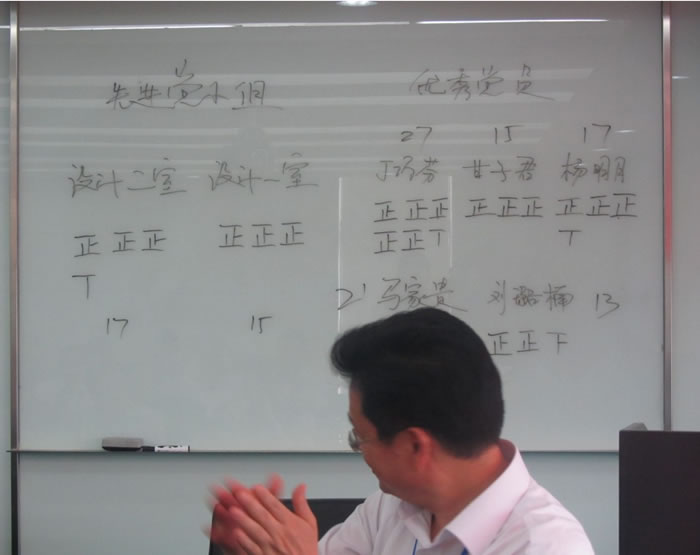 先进党小组
设计二室 设计一室
正 正正 正正正
T
17 15
优秀党员
27 15 17
丁巧芬 甘子君 杨明月
正正正 正正正 正正正
正正T T
21 马家贵 刘 13
正正下